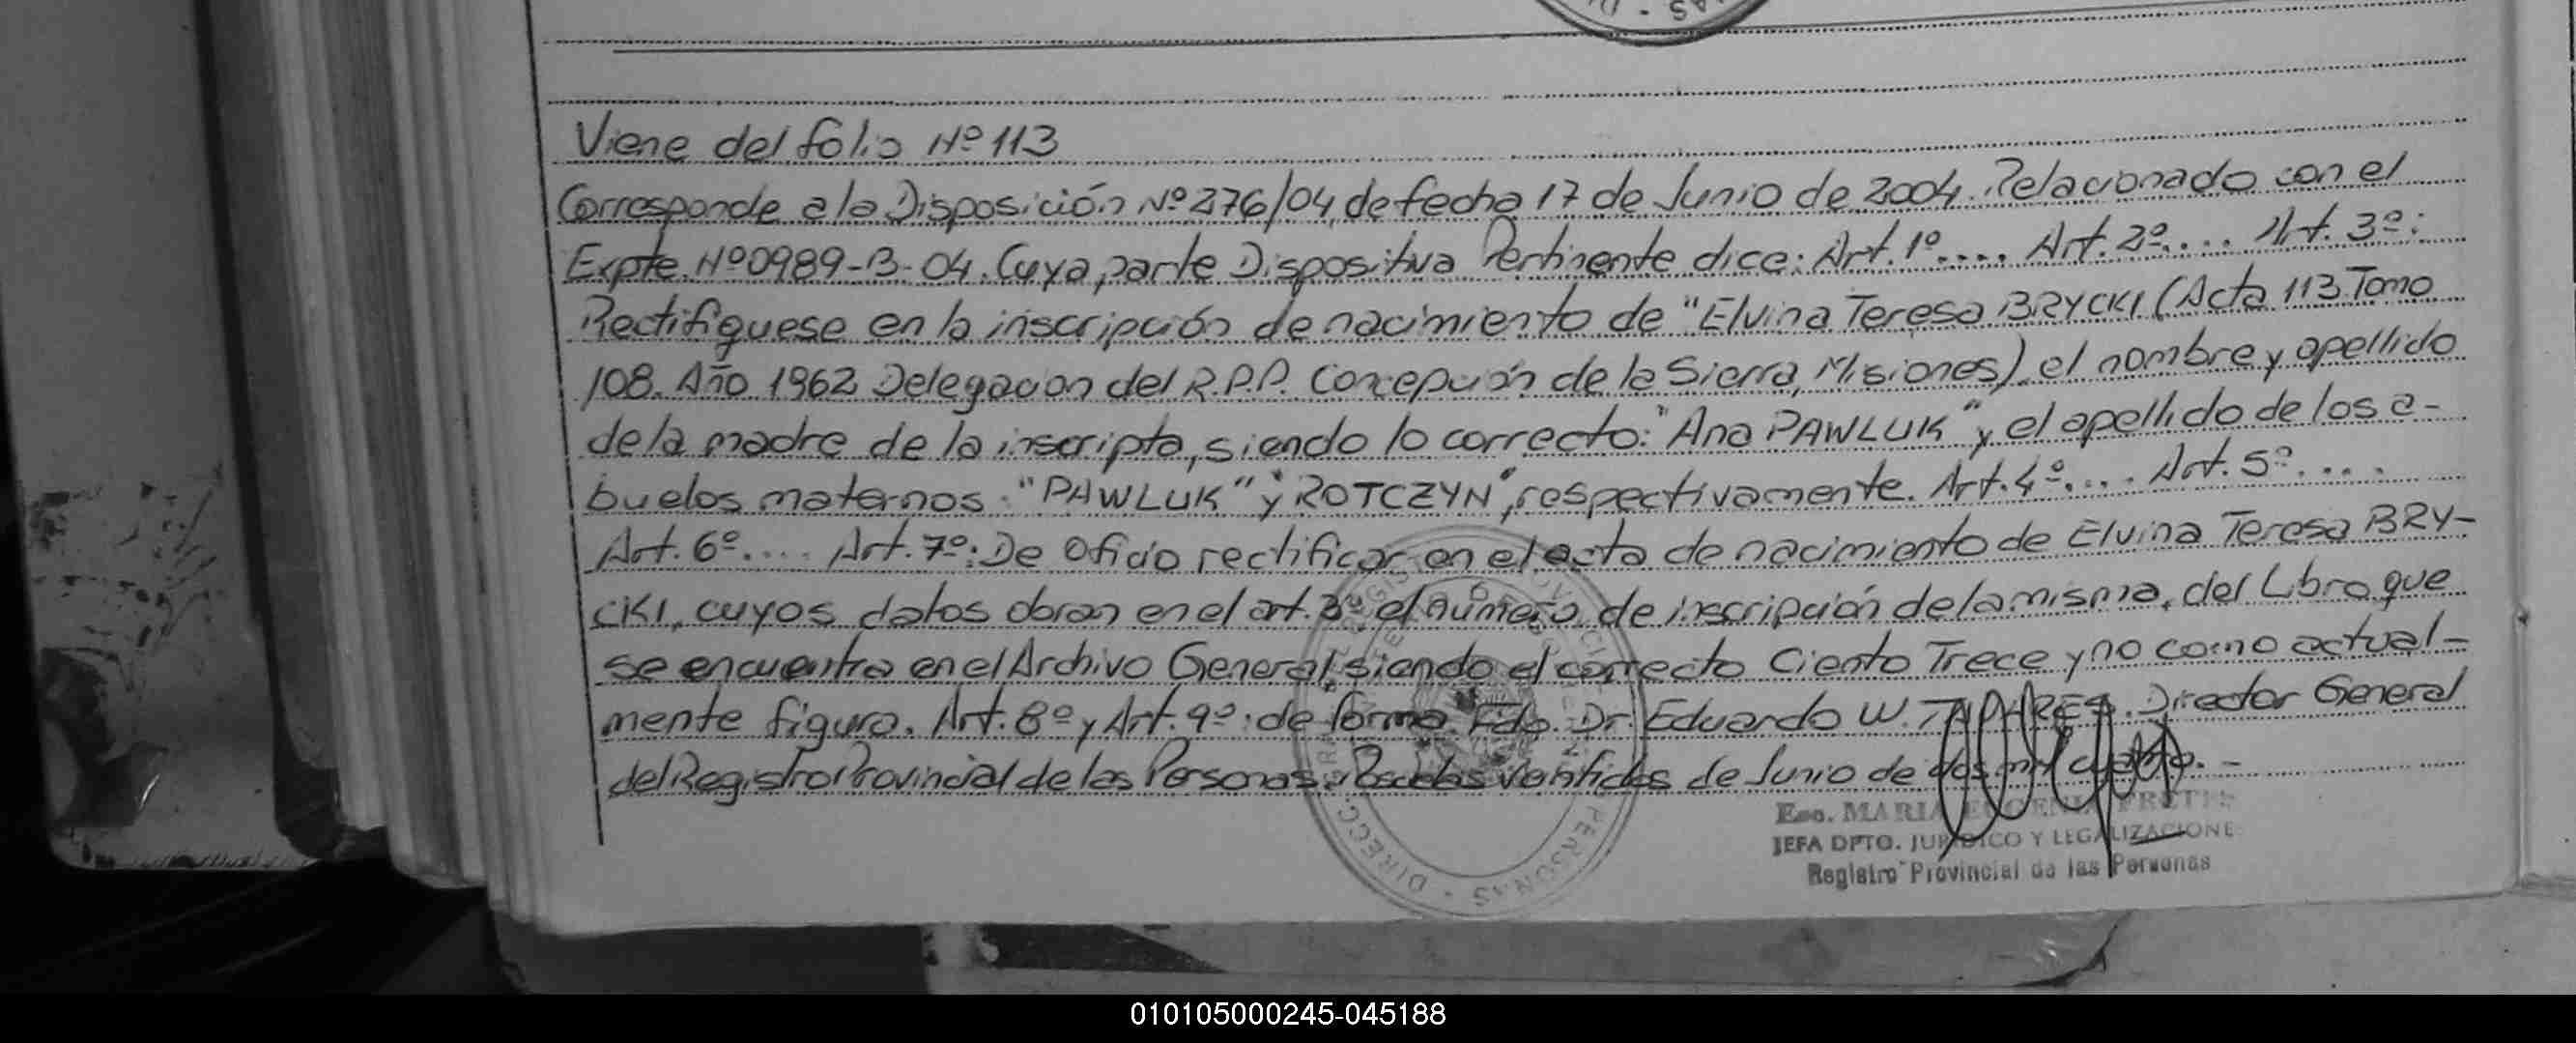 AS - D
Viene del folio Nº 113
Corresponde a la Disposición Nº 276/04, de fecha 17 de Junio de 2004. Relacionado con el
Expte. Nº 0989-B-04. Cuya parte Dispositiva Pertinente dice: Art. 1º.... Art. 2º.... Art. 3º:
Rectifíquese en la inscripción de nacimiento de "Elvina Teresa BRYCKI (Acta 113 Tomo
108. Año 1962 Delegacion del R.P.P. Concepción de la Sierra, Misiones), el nombre y apellido
de la madre de la inscripta, siendo lo correcto: "Ana PAWLUK" y el apellido de los a-
buelos maternos: "PAWLUK" y "ROTCZYN", respectivamente. Art. 4º.... Art. 5º....
Art. 6º.... Art. 7º: De Oficio rectificar en el acta de nacimiento de Elvina Teresa BRY-
CKI, cuyos datos obran en el art. 3º el número de inscripción de la misma, del Libro que
se encuentra en el Archivo General, siendo el correcto Ciento Trece y no como actual-
mente figura. Art. 8º y Art. 9º: de forma. Fdo. Dr. Eduardo W. Director General
del Registro Provincial de las Personas. Posadas veintidos de Junio de dos mil cuatro.-
Esc. MARIA EUGENIA
JEFA DPTO. JURIDICO Y LEGALIZACIONE
Registro Provincial de las Personas
PERSONAS - DIRECC
010105000245-045188